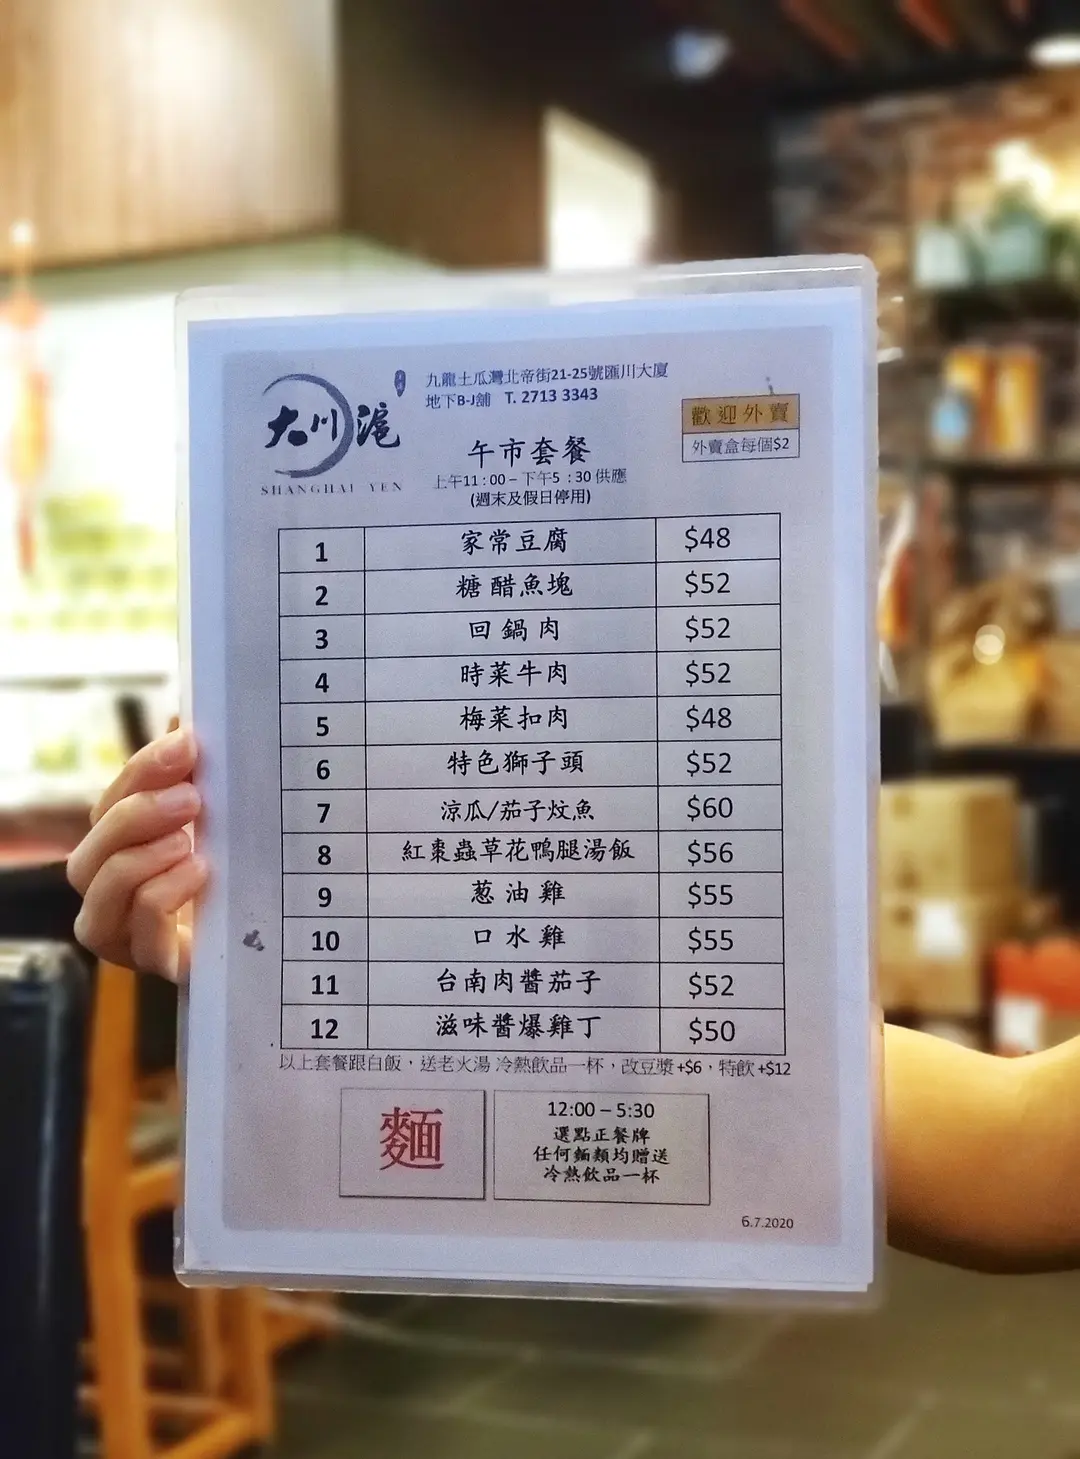 大川滬
SHANGHAI YEN
九龍土瓜灣北帝街21-25號匯川大廈
地下B-J舖 T. 2713 3343
歡迎外賣
外賣盒每個$2
午市套餐
上午11：00 – 下午5：30 供應
(週末及假日停用)
1 家常豆腐 $48
2 糖醋魚塊 $52
3 回鍋肉 $52
4 時菜牛肉 $52
5 梅菜扣肉 $48
6 特色獅子頭 $52
7 涼瓜/茄子炆魚 $60
8 紅棗蟲草花鴨腿湯飯 $56
9 葱油雞 $55
10 口水雞 $55
11 台南肉醬茄子 $52
12 滋味醬爆雞丁 $50
以上套餐跟白飯，送老火湯 冷熱飲品一杯，改豆漿 +$6，特飲 +$12
麵
12:00 – 5:30
選點正餐牌
任何麵類均贈送
冷熱飲品一杯
6.7.2020